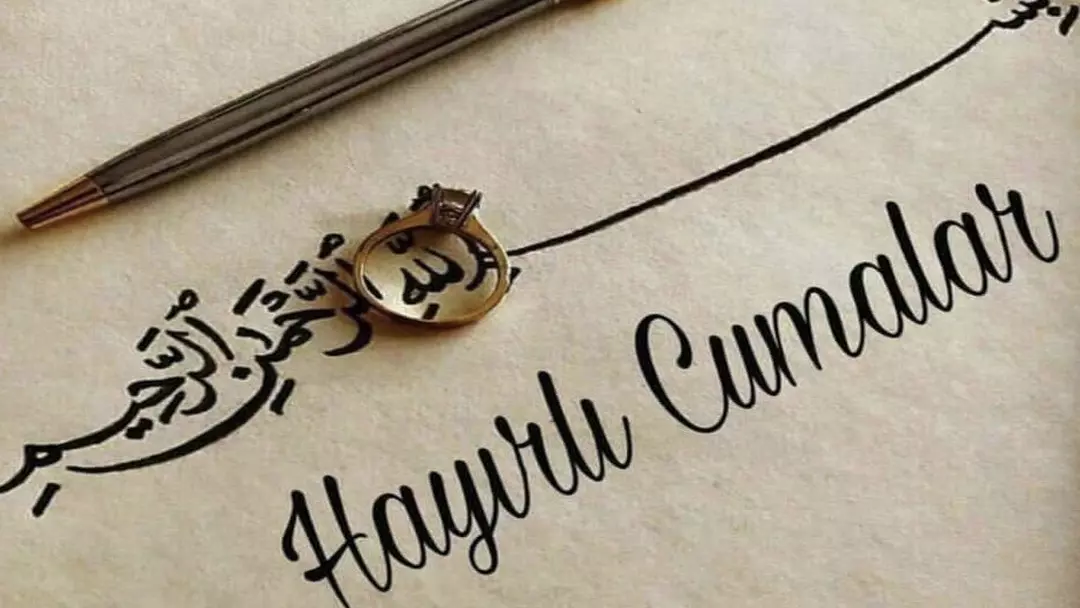 بسم الله الرحمن الرحيم
Hayırlı Cumalar